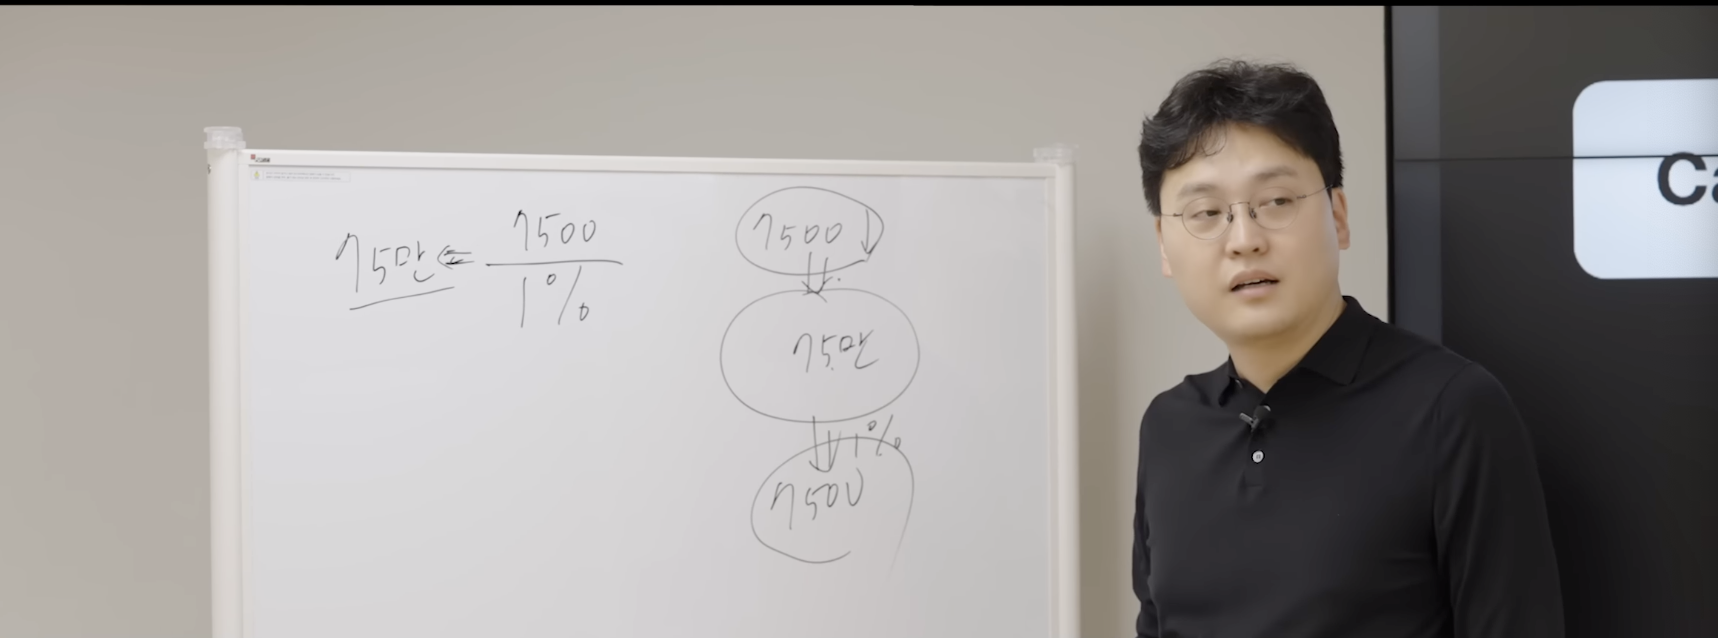 75만 ⇐ 7500
1%
7500 ↓
75만
1%
7500
Ca